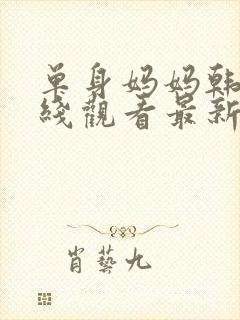 单身妈妈韩
线观看最新
肖艺九